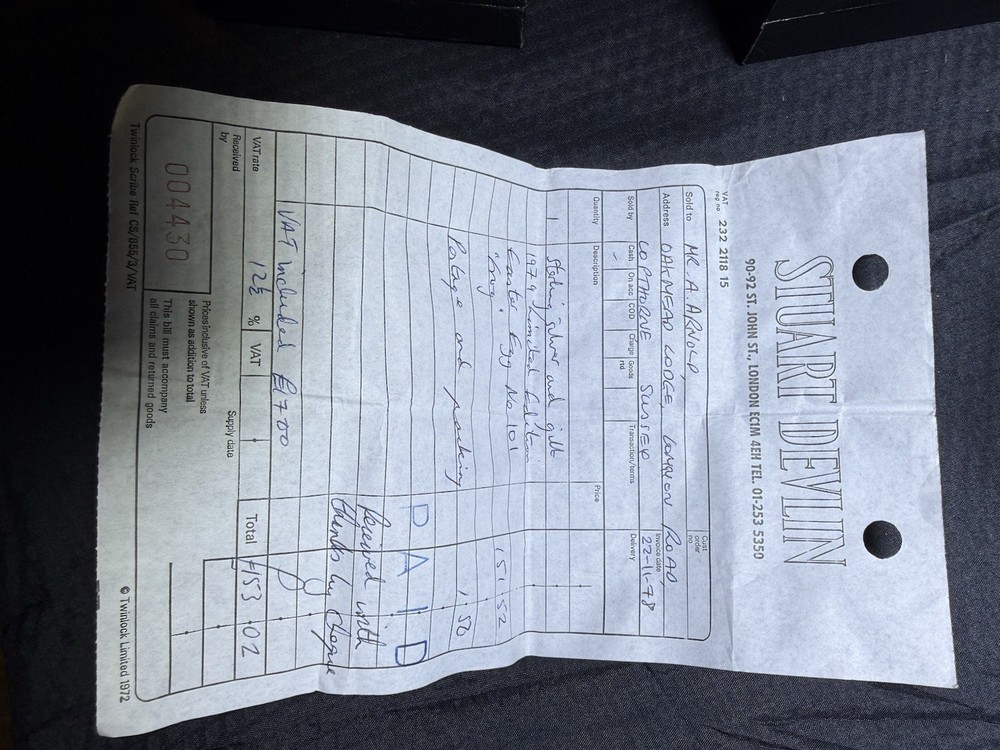 STUART DEVLIN
90-92 ST. JOHN ST., LONDON EC1M 4EH TEL. 01-253 5350
VAT reg no 232 2118 15
Cust order no
Sold to MR. A. ARNOLD,
Invoice date 22-11-78
Address OAKMEAD LODGE, LONDON ROAD,
COPTHORNE SUSSEX
Sold by Cash On acc COD Charge Goods rtd Transaction/terms Delivery
Quantity Description Price
1 Sterling silver and gilt
1979 Limited Edition
Easter Egg No 101 151 . 52
"Frog".
Postage and packing 1 . 50
PAID
Received with
thanks by cheque
VAT included £17.00
VAT rate 12½ % VAT
Total £153 . 02
Received by
Supply date
004430
Prices inclusive of VAT unless
shown as addition to total
This bill must accompany
all claims and returned goods
Twinlock Scribe Ref CS/855/3/VAT
© Twinlock Limited 1972